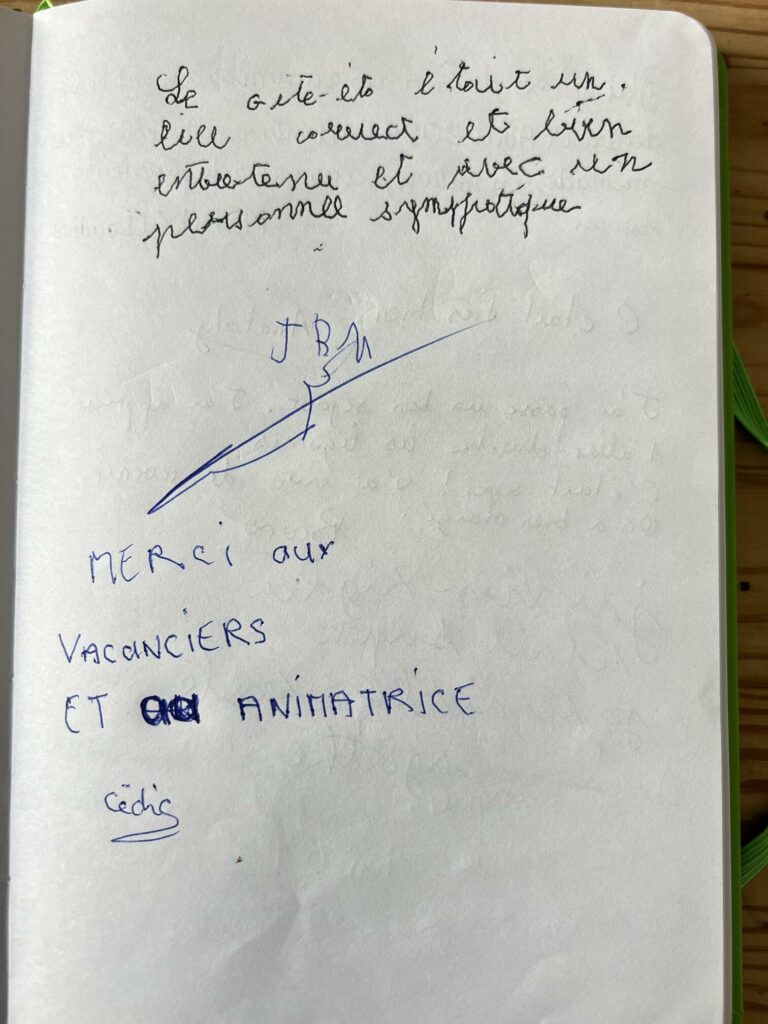 Le gite-étè était un.
lieu correct et bien
entretenu et avec un
personnee sympatique
JBM
MERCi aux
VACANCiERS
ET au ANiMATRiCE
Cédric